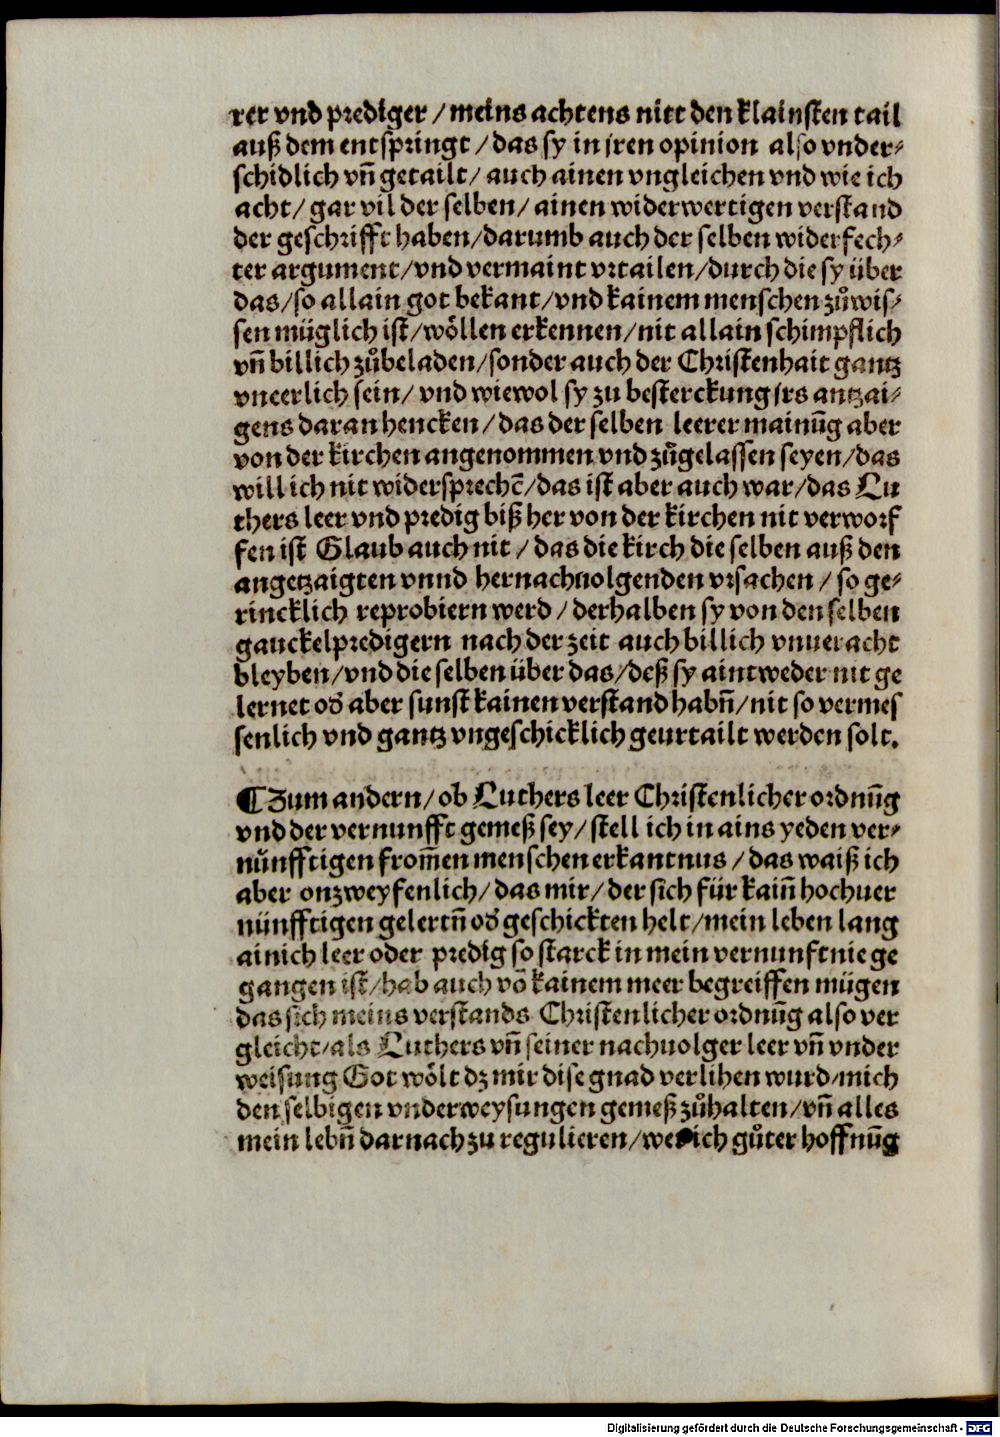 rer vnd prediger / meins achtens nitt den klainsten tail
auß dem entspringt / das sy in jren opinion also vnder⸗
schidlich vñ getailt / auch ainen vngleichen vnd wie ich
acht / gar vil der selben / ainen widerwertigen verstand
der geschrifft haben / darumb auch der selben widerfech⸗
ter argument / vnd vermaint vrtailen / durch die sy über
das / so allain got bekant / vnd kainem menschen zůwis⸗
sen müglich ist / wöllen erkennen / nit allain schimpflich
vñ billich zůbeladen / sonder auch der Christenhait gantz
vneerlich sein / vnd wiewol sy zu besterckung jrs antzai⸗
gens daran hencken / das der selben leerer mainūg aber
von der kirchen angenommen vnd zůgelassen seyen / das
will ich nit widersprechē / das ist aber auch war / das Lu
thers leer vnd predig biß her von der kirchen nit verworf
fen ist Glaub auch nit / das die kirch die selben auß den
angetzaigten vnnd hernachuolgenden vrsachen / so ge⸗
rincklich reprobiern werd / derhalben sy von den selben
gauckelpredigern nach der zeit auch billich vnueracht
bleyben / vnd die selben über das / deß sy aintweder nit ge
lernet oď aber sunst kainen verstand habñ / nit so vermes
senlich vnd gantz vngeschicklich geurtailt werden solt.
¶ Zum andern / ob Luthers leer Christenlicher ordnūg
vnd der vernunfft gemeß sey / stell ich in ains yeden ver⸗
nünfftigen from̃en menschen erkantnus / das waiß ich
aber onzweyfenlich / das mir / der sich für kaiñ hochuer
nünfftigen gelertñ oď geschickten helt / mein leben lang
ainich leer oder predig so starck in mein vernunft nie ge
gangen ist / hab auch võ kainem meer begreiffen mügen
das sich meins verstands Christenlicher ordnūg also ver
gleicht / als Luthers vñ seiner nachuolger leer vñ vnder
weisung Got wölt dz mir dise gnad verlihen wurd / mich
den selbigen vnderweysungen gemeß zůhalten / vñ alles
mein lebñ darnach zu regulieren / ich gůter hoffnūg
Digitalisierung gefördert durch die Deutsche Forschungsgemeinschaft - DFG